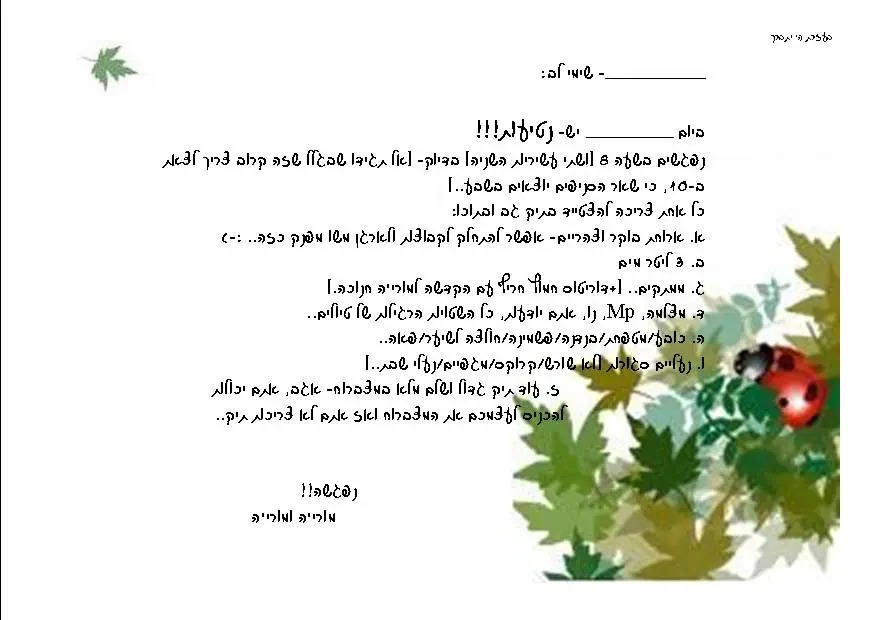 בעזרת ה' יתברך
____________- שימי לב:
ביום __________ יש- נטיעות!!!
נפגשים בשעה 8 [ושתי עשיריות השניה] בדיוק- [אל תגידו שבגלל שזה קרוב צריך לצאת
ב-10, כי שאר הסניפים יוצאים בשבע..]
כל אחת צריכה להצטייד בתיק גב ובתוכו:
א. ארוחת בוקר וצהריים- אפשר להתחלק לקבוצות ולארגן משו מפנק כזה.. :-)
ב. 3 ליטר מים
ג. ממתקים.. [+דוריטוס חמוץ חריף עם הקדשה למורייה חנוכה.]
ד. מצלמה, Mp, נו, אתם יודעות, כל השטויות הרגילות של טיולים..
ה. כובע/מטפחת/בנדנה/פשמינה/חולצה לשיער/פאה..
ו. נעליים סגורות [לא שורש/קרוקס/מגפיים/נעלי שבת..]
ז. עוד תיק גדול ושלם מלא במצברוח- אגב, אתם יכולות
להכניס לעצמכם את המצברוח ואז אתם לא צריכות תיק..
נפגשה!!
מורייה ומורייה